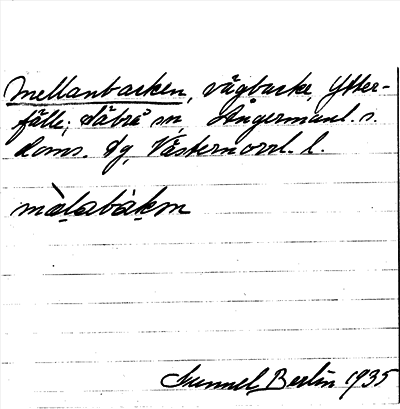 Mellanbacken, vägbacke, Ytter-
fälle, Säbrå sn, Ångermanl. s.
Doms. Dg, Västernorrl. l.
màlabàkɱ
Gunnel Berlin 1935